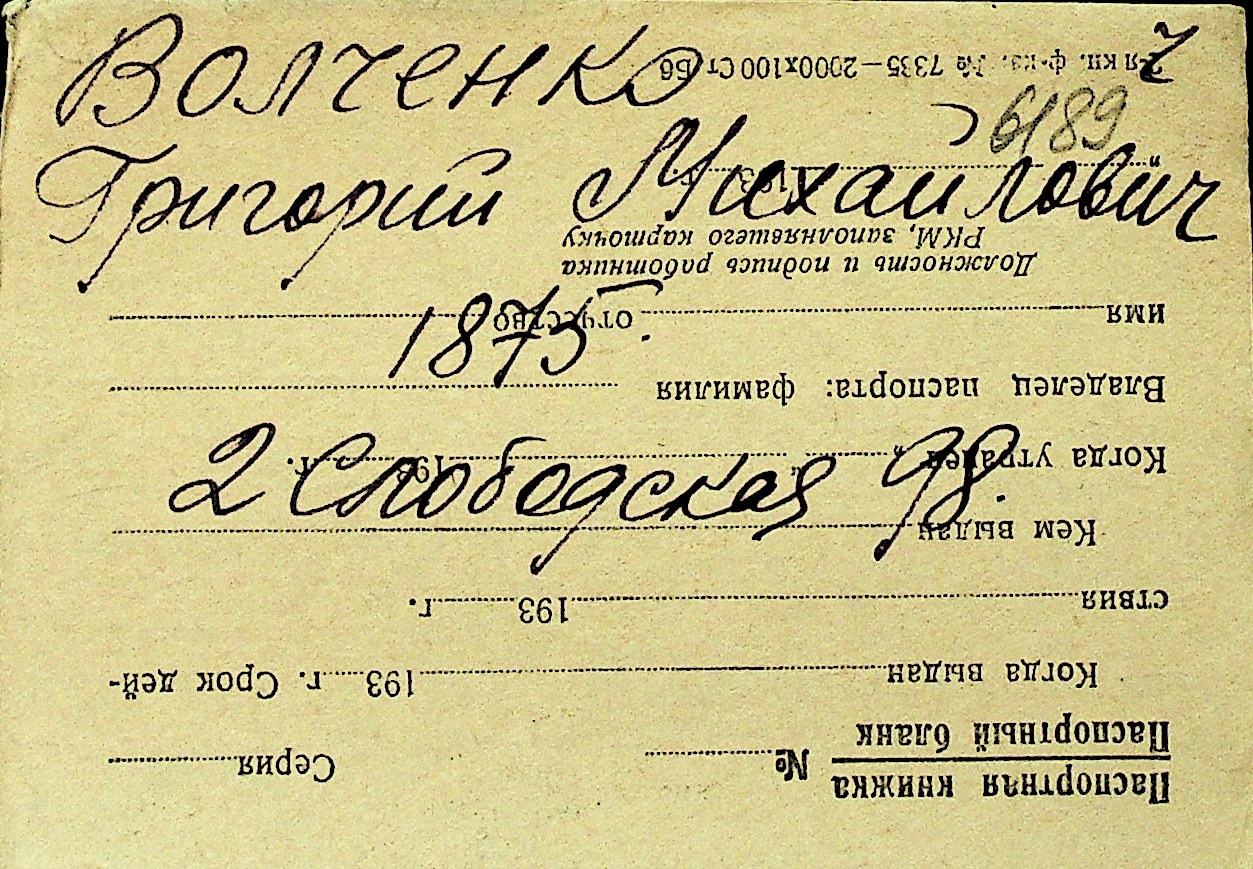 Волченко 7
6189
Григорий Михайлович
1875 г.
2 Слободская 98.
Паспортная книжка
Паспортный бланк № Серия
Когда выдан 193 г. Срок дей-
ствия 193 г.
Кем выдан
Когда утрачен „ “ 193 г.
Владелец паспорта: фамилия
имя отчество
Должность и подпись работника
РКМ, заполнявшего карточку
„ “ 193 г.
7-я кн. ф-ка. № 7335—2000х100 Ст Б6